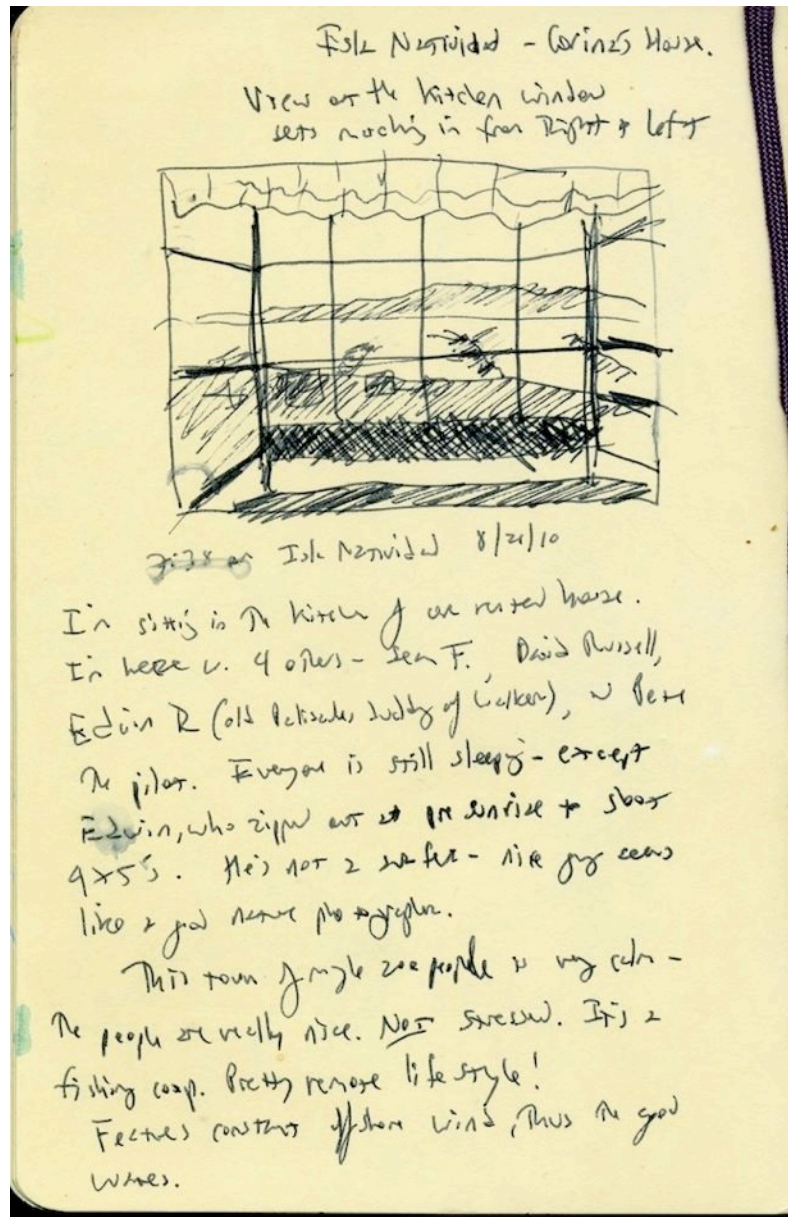 Isla Natividad - Corina's House.
View out the kitchen window
sets marching in from Right & Left
7:38 am Isla Natividad 8/21/10
I'm sitting in the kitchen of our rented house.
I'm here w. 4 others - Sean F., David Russell,
Edwin R (old Palisades buddy of Walker), & Pete
the pilot. Everyone is still sleeping - except
Edwin, who zipped out at pre sunrise to shoot
4x5's. He's not a surfer - nice guy seems
like a good nature photographer.
This town of maybe 200 people is very calm -
the people are really nice. NOT stressed. It's a
fishing coop. Pretty remote life style!
Features constant offshore wind, thus the good
waves.